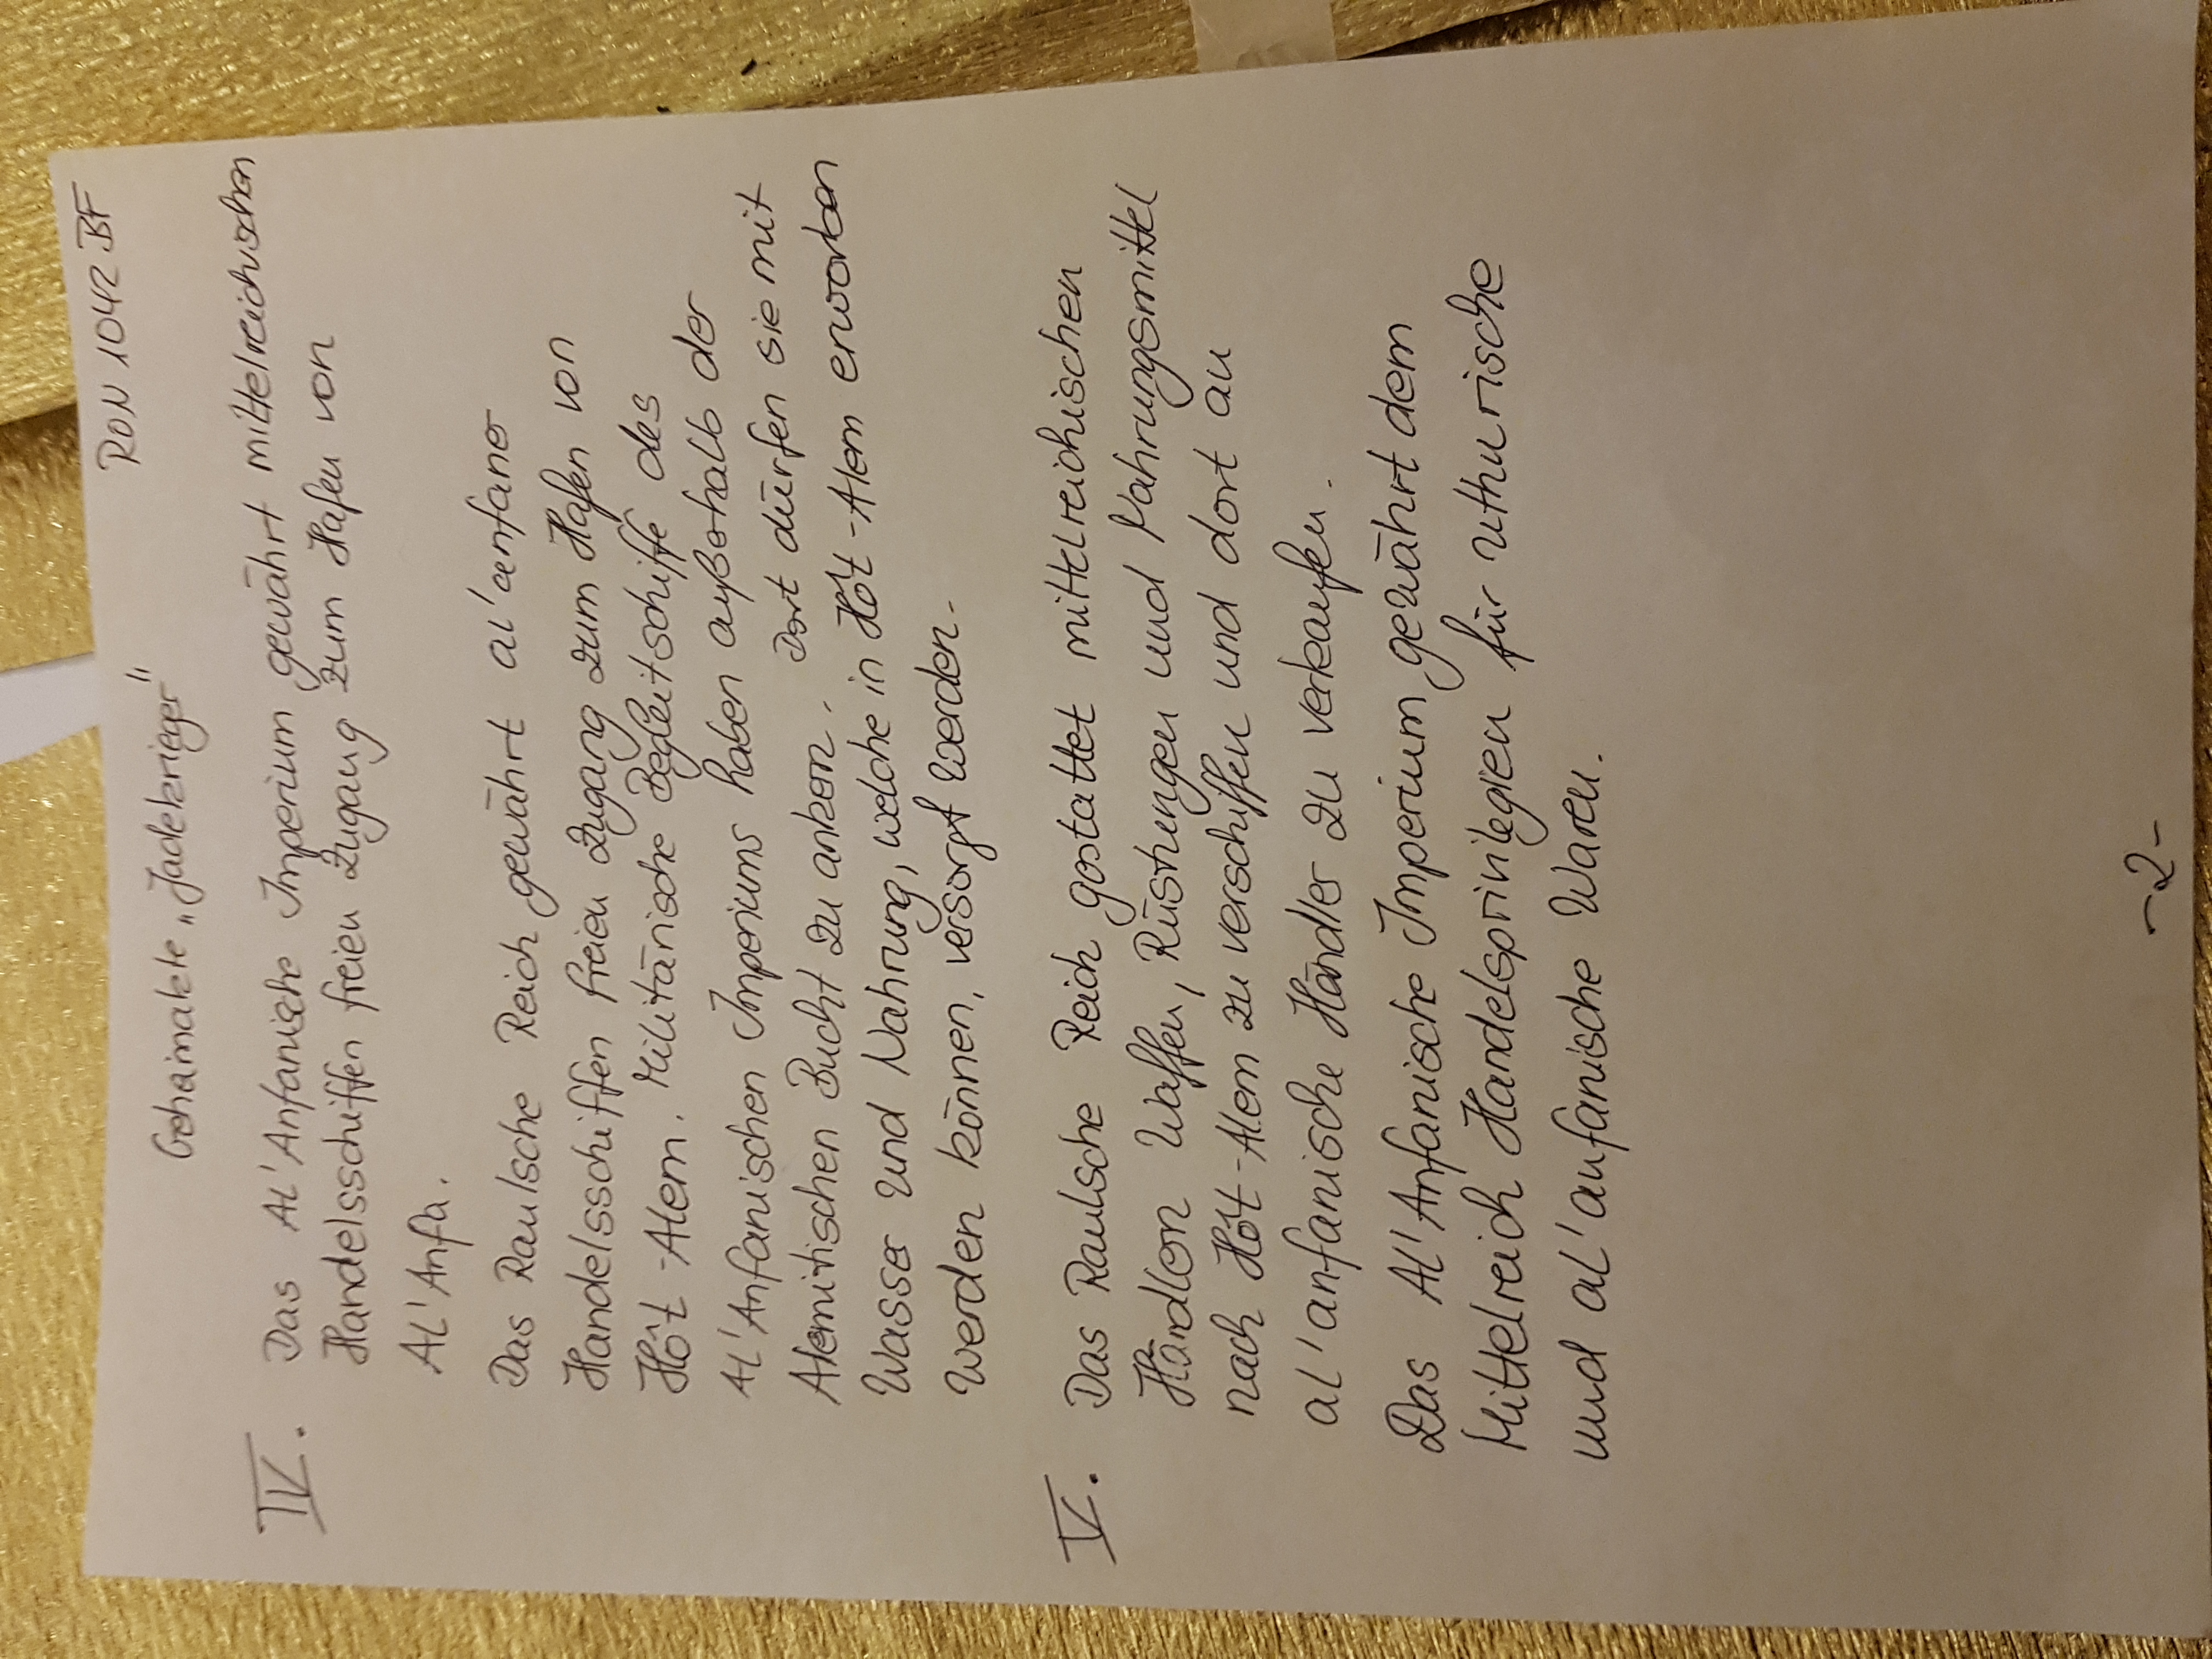 RON 1042 BF
Geheimakte „Jadekrieger"
IV. Das Al'Anfanische Imperium gewährt mittelreichischen
Handelsschiffen freien Zugang zum Hafen von
Al'Anfa.
Das Raulsche Reich gewährt al'anfaner
Handelsschiffen freien Zugang zum Hafen von
Hôt-Alem. Militärische Begleitschiffe des
Al'Anfanischen Imperiums haben außerhalb der
Alemitischen Bucht zu ankern. Dort dürfen sie mit
Wasser und Nahrung, welche in Hôt-Alem erworben
werden können, versorgt werden.
V. Das Raulsche Reich gestattet mittelreichischen
Händlern Waffen, Rüstungen und Nahrungsmittel
nach Hôt-Alem zu verschiffen und dort an
al'anfanische Händler zu verkaufen.
Das Al'Anfanische Imperium gewährt dem
Mittelreich Handelsprivilegien für uthurische
und al'anfanische Waren.
-2-